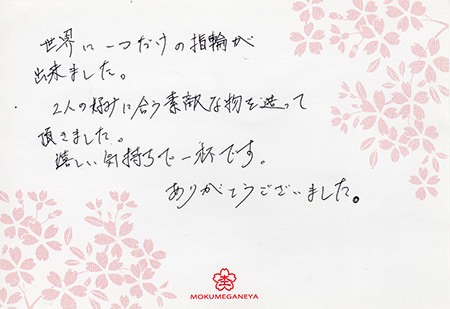 世界に一つだけの指輪が
出来ました。
2人の好みに合う素敵な物を造って
頂きました。
嬉しい気持ちで一杯です。
ありがとうございました。
MOKUMEGANEYA